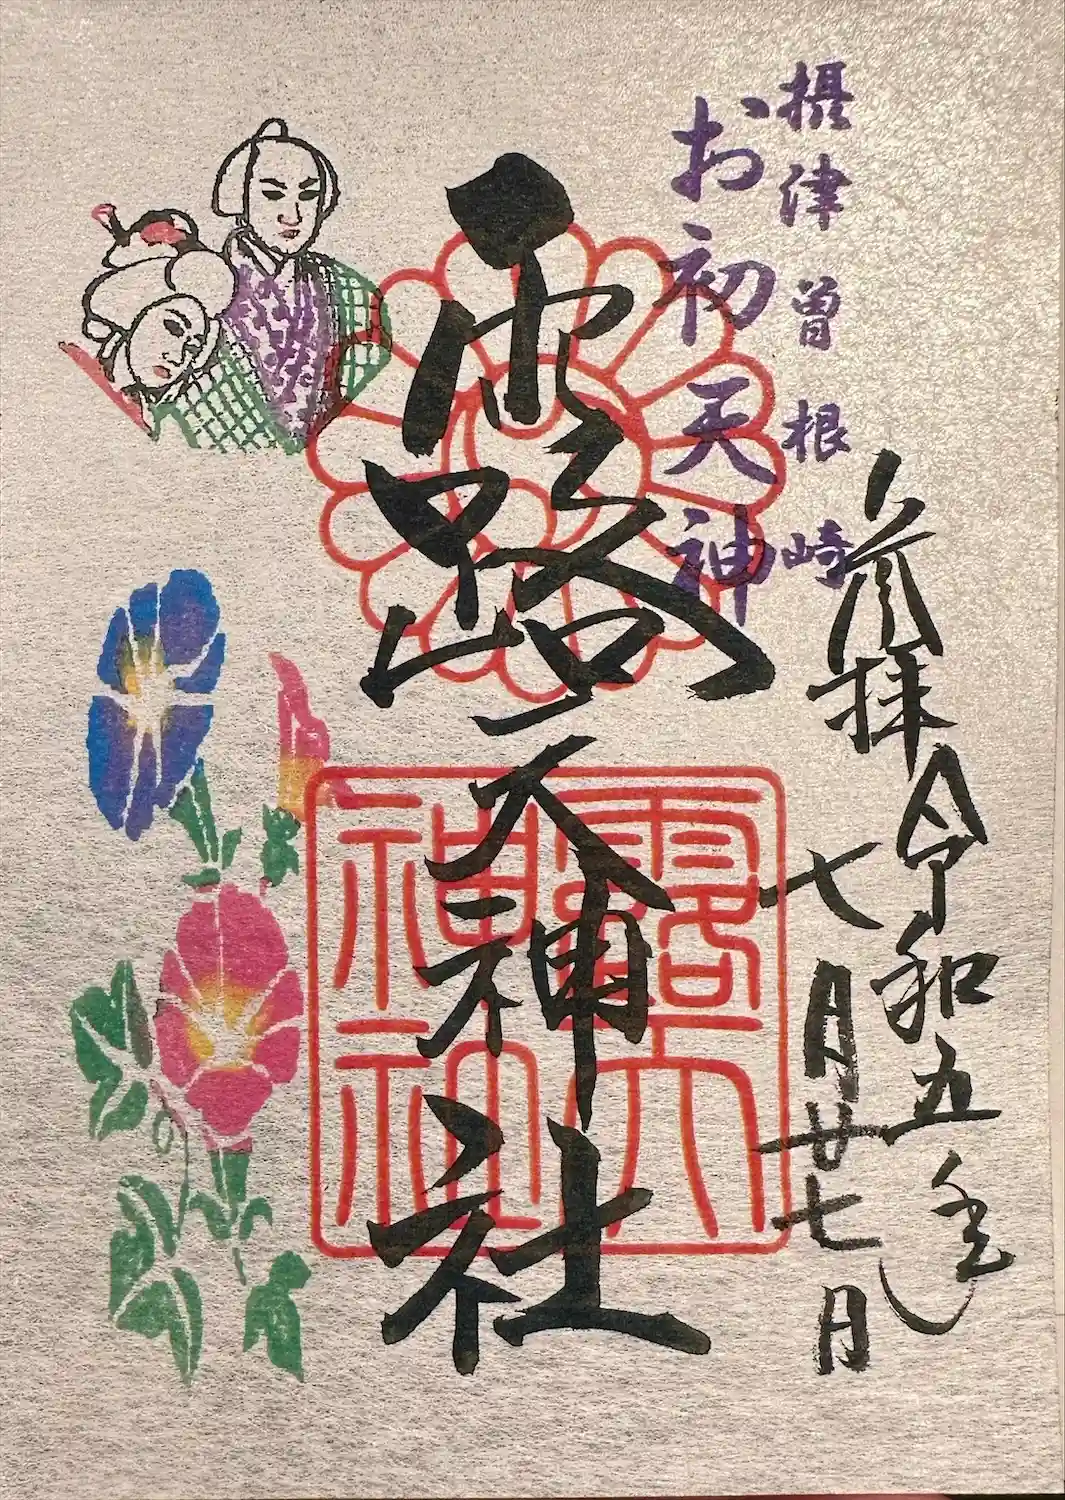 参拝 令和五年
七月廿七日
摂津曽根崎
お初天神
露天神社
露天
神社